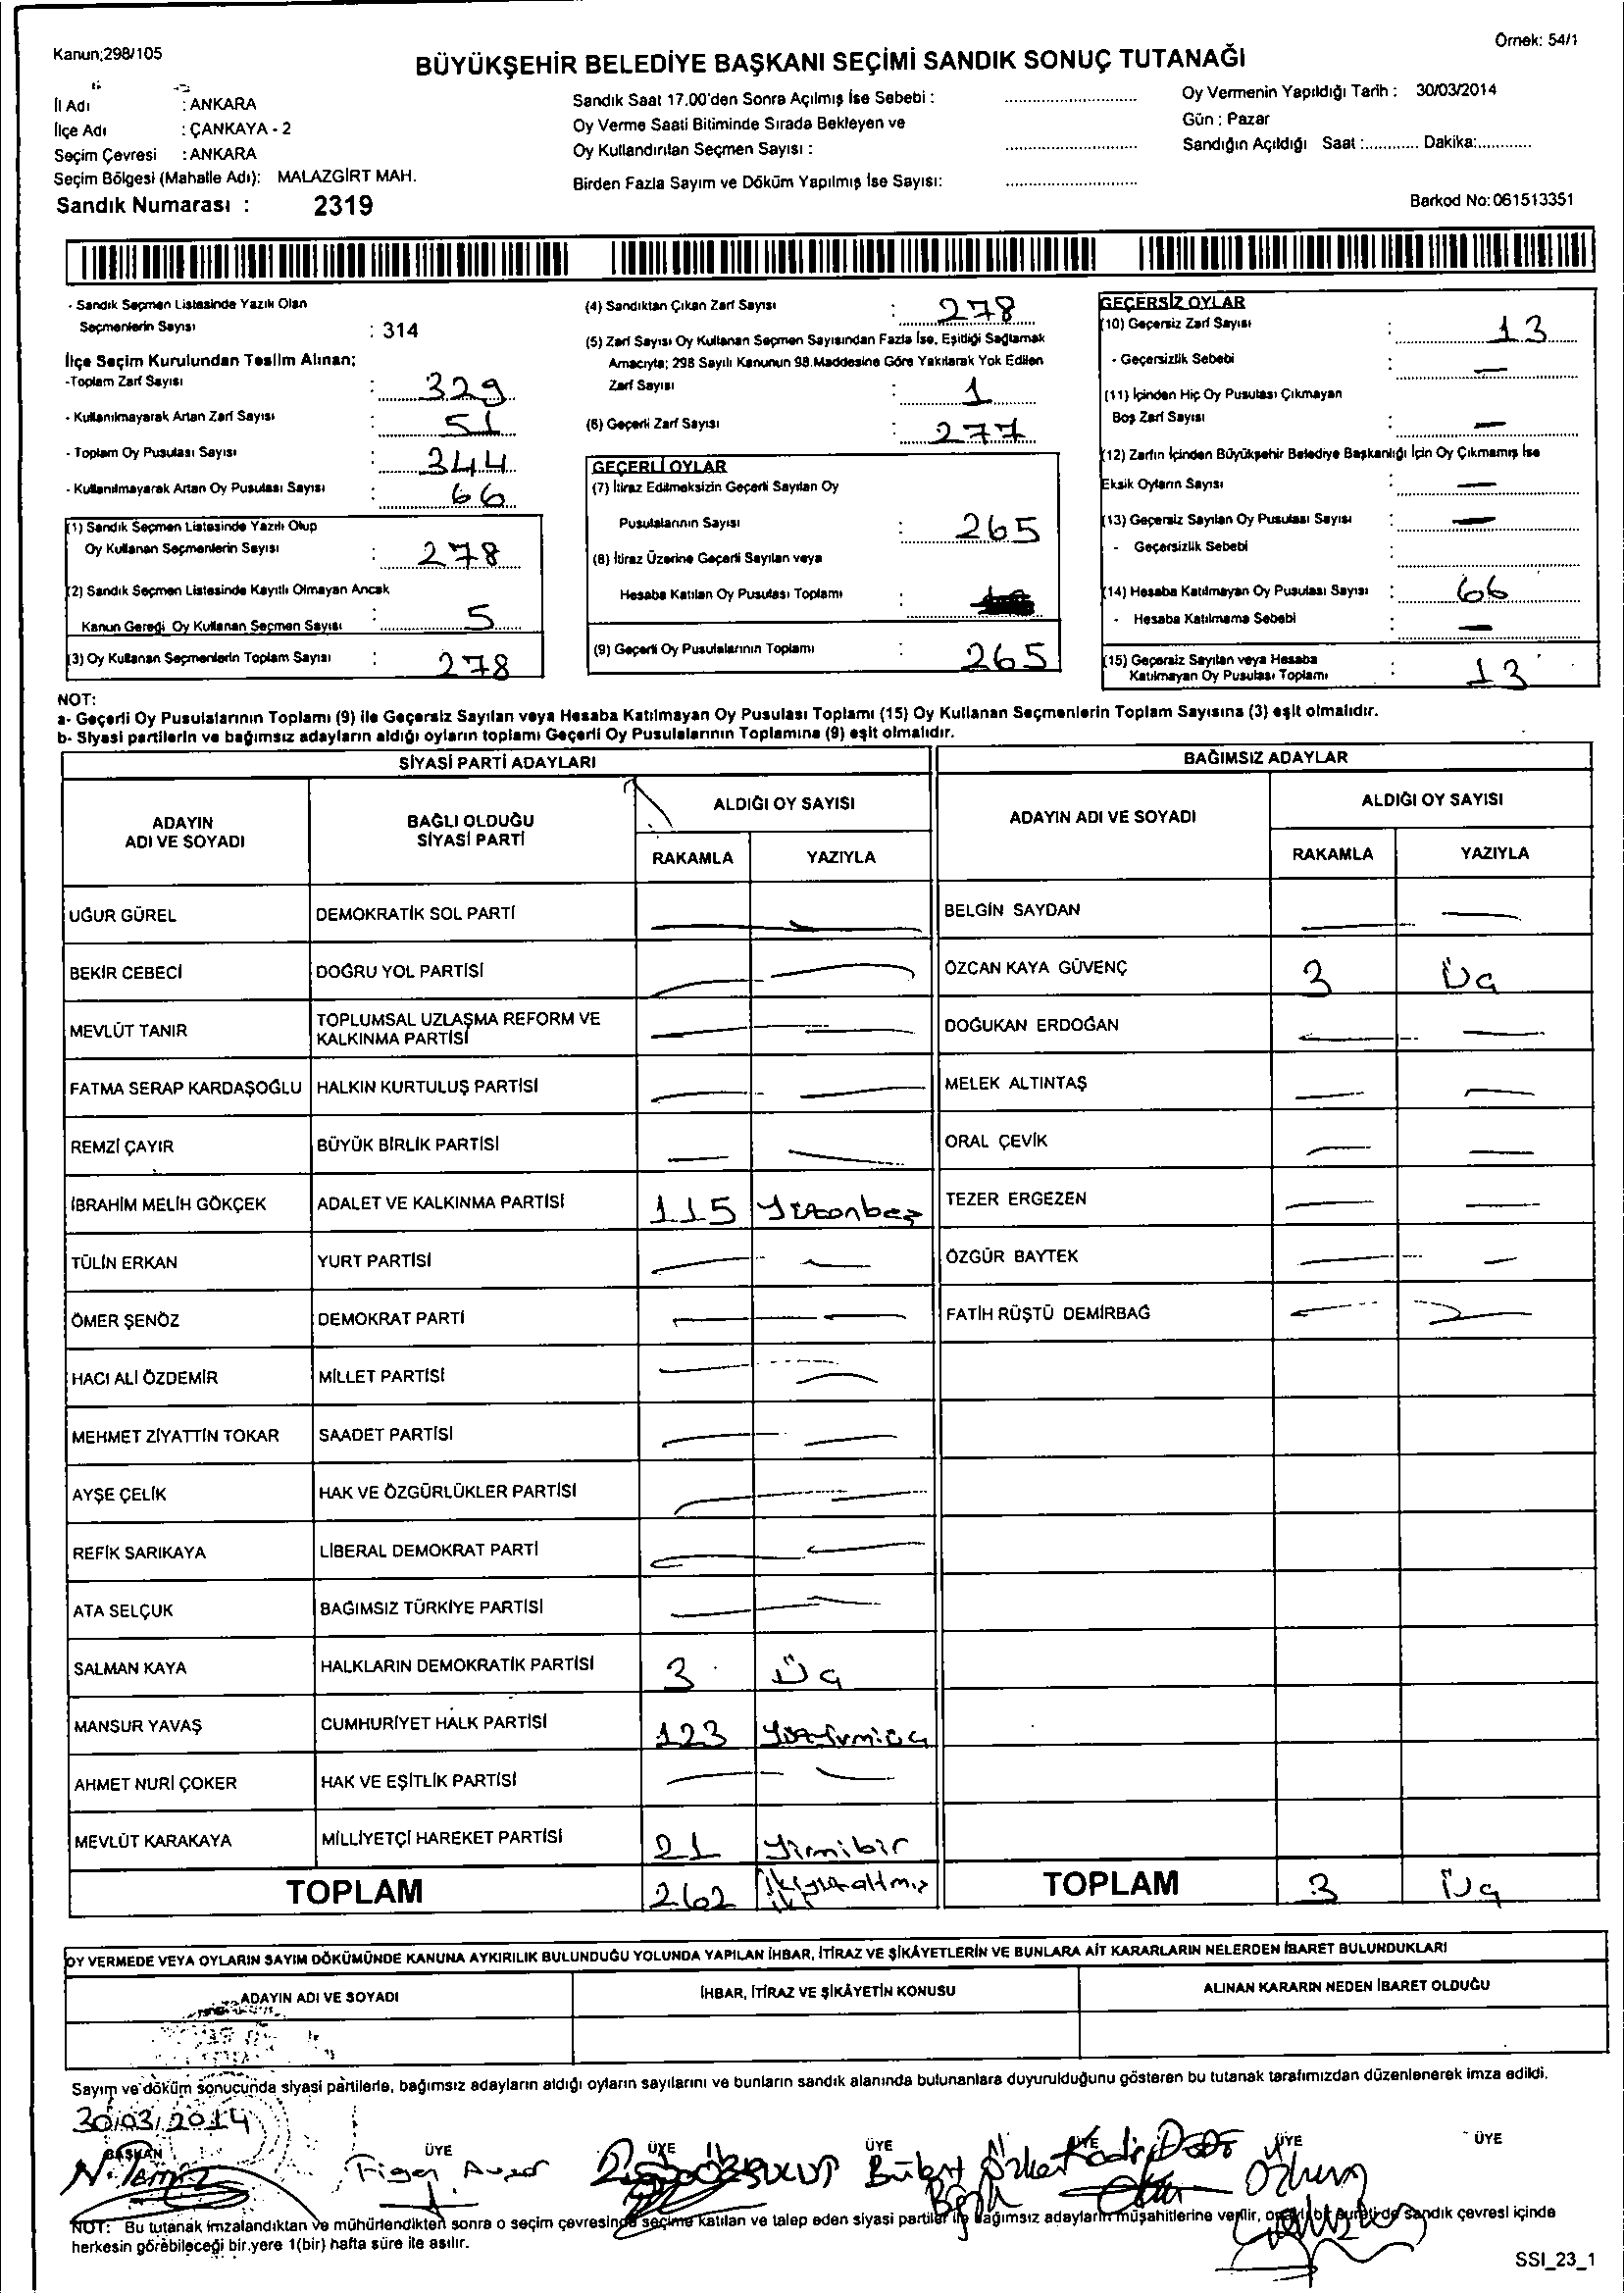 Kanun;298/105
Örnek: 54/1
BÜYÜKŞEHİR BELEDİYE BAŞKANI SEÇİMİ SANDIK SONUÇ TUTANAĞI
İl Adı : ANKARA
İlçe Adı : ÇANKAYA - 2
Seçim Çevresi : ANKARA
Seçim Bölgesi (Mahalle Adı): MALAZGİRT MAH.
Sandık Numarası : 2319
Sandık Saat 17.00'den Sonra Açılmış İse Sebebi :
Oy Verme Saati Bitiminde Sırada Bekleyen ve
Oy Kullandırılan Seçmen Sayısı :
Birden Fazla Sayım ve Döküm Yapılmış İse Sayısı:
Oy Vermenin Yapıldığı Tarih : 30/03/2014
Gün : Pazar
Sandığın Açıldığı Saat :............ Dakika:............
Barkod No:061513351
- Sandık Seçmen Listesinde Yazılı Olan
Seçmenlerin Sayısı : 314
İlçe Seçim Kurulundan Teslim Alınan;
-Toplam Zarf Sayısı : 329
- Kullanılmayarak Artan Zarf Sayısı : 51
- Toplam Oy Pusulası Sayısı : 344
- Kullanılmayarak Artan Oy Pusulası Sayısı : 66
(1) Sandık Seçmen Listesinde Yazılı Olup
Oy Kullanan Seçmenlerin Sayısı : 278
(2) Sandık Seçmen Listesinde Kayıtlı Olmayan Ancak
Kanun Gereği Oy Kullanan Seçmen Sayısı : 5
(3) Oy Kullanan Seçmenlerin Toplam Sayısı : 278
(4) Sandıktan Çıkan Zarf Sayısı : 278
(5) Zarf Sayısı Oy Kullanan Seçmen Sayısından Fazla İse, Eşitliği Sağlamak
Amacıyla; 298 Sayılı Kanunun 98.Maddesine Göre Yakılarak Yok Edilen
Zarf Sayısı : 1
(6) Geçerli Zarf Sayısı : 277
GEÇERLİ OYLAR
(7) İtiraz Edilmeksizin Geçerli Sayılan Oy
Pusulalarının Sayısı : 265
(8) İtiraz Üzerine Geçerli Sayılan veya
Hesaba Katılan Oy Pusulası Toplamı :
(9) Geçerli Oy Pusulalarının Toplamı : 265
GEÇERSİZ OYLAR
(10) Geçersiz Zarf Sayısı : 13
- Geçersizlik Sebebi : —
(11) İçinden Hiç Oy Pusulası Çıkmayan
Boş Zarf Sayısı : —
(12) Zarfın İçinden Büyükşehir Belediye Başkanlığı İçin Oy Çıkmamış İse
Eksik Oyların Sayısı : —
(13) Geçersiz Sayılan Oy Pusulası Sayısı : —
- Geçersizlik Sebebi :
(14) Hesaba Katılmayan Oy Pusulası Sayısı : 66
- Hesaba Katılmama Sebebi : —
(15) Geçersiz Sayılan veya Hesaba
Katılmayan Oy Pusulası Toplamı : 13
NOT:
a- Geçerli Oy Pusulalarının Toplamı (9) ile Geçersiz Sayılan veya Hesaba Katılmayan Oy Pusulası Toplamı (15) Oy Kullanan Seçmenlerin Toplam Sayısına (3) eşit olmalıdır.
b- Siyasi partilerin ve bağımsız adayların aldığı oyların toplamı Geçerli Oy Pusulalarının Toplamına (9) eşit olmalıdır.
SİYASİ PARTİ ADAYLARI
ADAYIN
ADI VE SOYADI
BAĞLI OLDUĞU
SİYASİ PARTİ
ALDIĞI OY SAYISI
RAKAMLA YAZIYLA
UĞUR GÜREL DEMOKRATİK SOL PARTİ — —
BEKİR CEBECİ DOĞRU YOL PARTİSİ — —
MEVLÜT TANIR TOPLUMSAL UZLAŞMA REFORM VE
KALKINMA PARTİSİ — —
FATMA SERAP KARDAŞOĞLU HALKIN KURTULUŞ PARTİSİ — —
REMZİ ÇAYIR BÜYÜK BİRLİK PARTİSİ — —
İBRAHİM MELİH GÖKÇEK ADALET VE KALKINMA PARTİSİ 115 Yüzonbeş
TÜLİN ERKAN YURT PARTİSİ — —
ÖMER ŞENÖZ DEMOKRAT PARTİ — —
HACI ALİ ÖZDEMİR MİLLET PARTİSİ — —
MEHMET ZİYATTİN TOKAR SAADET PARTİSİ — —
AYŞE ÇELİK HAK VE ÖZGÜRLÜKLER PARTİSİ — —
REFİK SARIKAYA LİBERAL DEMOKRAT PARTİ — —
ATA SELÇUK BAĞIMSIZ TÜRKİYE PARTİSİ — —
SALMAN KAYA HALKLARIN DEMOKRATİK PARTİSİ 3 Üç
MANSUR YAVAŞ CUMHURİYET HALK PARTİSİ 123 Yüzyirmiüç
AHMET NURİ ÇOKER HAK VE EŞİTLİK PARTİSİ — —
MEVLÜT KARAKAYA MİLLİYETÇİ HAREKET PARTİSİ 21 Yirmibir
TOPLAM 262 İkiyüzaltmış
iki
BAĞIMSIZ ADAYLAR
ADAYIN ADI VE SOYADI
ALDIĞI OY SAYISI
RAKAMLA YAZIYLA
BELGİN SAYDAN — —
ÖZCAN KAYA GÜVENÇ 3 Üç
DOĞUKAN ERDOĞAN — —
MELEK ALTINTAŞ — —
ORAL ÇEVİK — —
TEZER ERGEZEN — —
ÖZGÜR BAYTEK — —
FATİH RÜŞTÜ DEMİRBAĞ — —
TOPLAM 3 Üç
OY VERMEDE VEYA OYLARIN SAYIM DÖKÜMÜNDE KANUNA AYKIRILIK BULUNDUĞU YOLUNDA YAPILAN İHBAR, İTİRAZ VE ŞİKÂYETLERİN VE BUNLARA AİT KARARLARIN NELERDEN İBARET BULUNDUKLARI
ADAYIN ADI VE SOYADI
İHBAR, İTİRAZ VE ŞİKÂYETİN KONUSU
ALINAN KARARIN NEDEN İBARET OLDUĞU
Sayım ve döküm sonucunda siyasi partilerle, bağımsız adayların aldığı oyların sayılarını ve bunların sandık alanında bulunanlara duyurulduğunu gösteren bu tutanak tarafımızdan düzenlenerek imza edildi.
30/03/2014
BAŞKAN ÜYE ÜYE ÜYE ÜYE ÜYE ÜYE
N. Temiz
NOT: Bu tutanak imzalandıktan ve mühürlendikten sonra o seçim çevresinde seçime katılan ve talep eden siyasi partiler ile bağımsız adayların müşahitlerine verilir, onaylı bir sureti de sandık çevresi içinde
herkesin görebileceği bir yere 1(bir) hafta süre ile asılır.
SSI_23_1